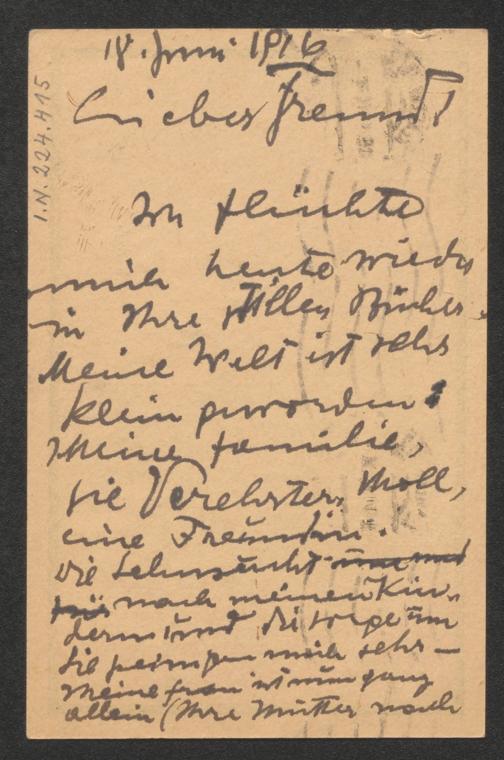 18. Juni 1916
I.N. 224.415
Lieber Freund!
Ich flüchte
mich heute wieder
in Ihre stillen Bücher.
Meine Welt ist sehr
klein geworden:
Meine Familie,
Sie Verehrter, Moll,
eine Freundin.
Die Sehnsucht
nach meinen Kin-
dern und die Sorge um
sie peinigen mich sehr –
Meine Frau ist nun ganz
allein (Ihre Mutter nach